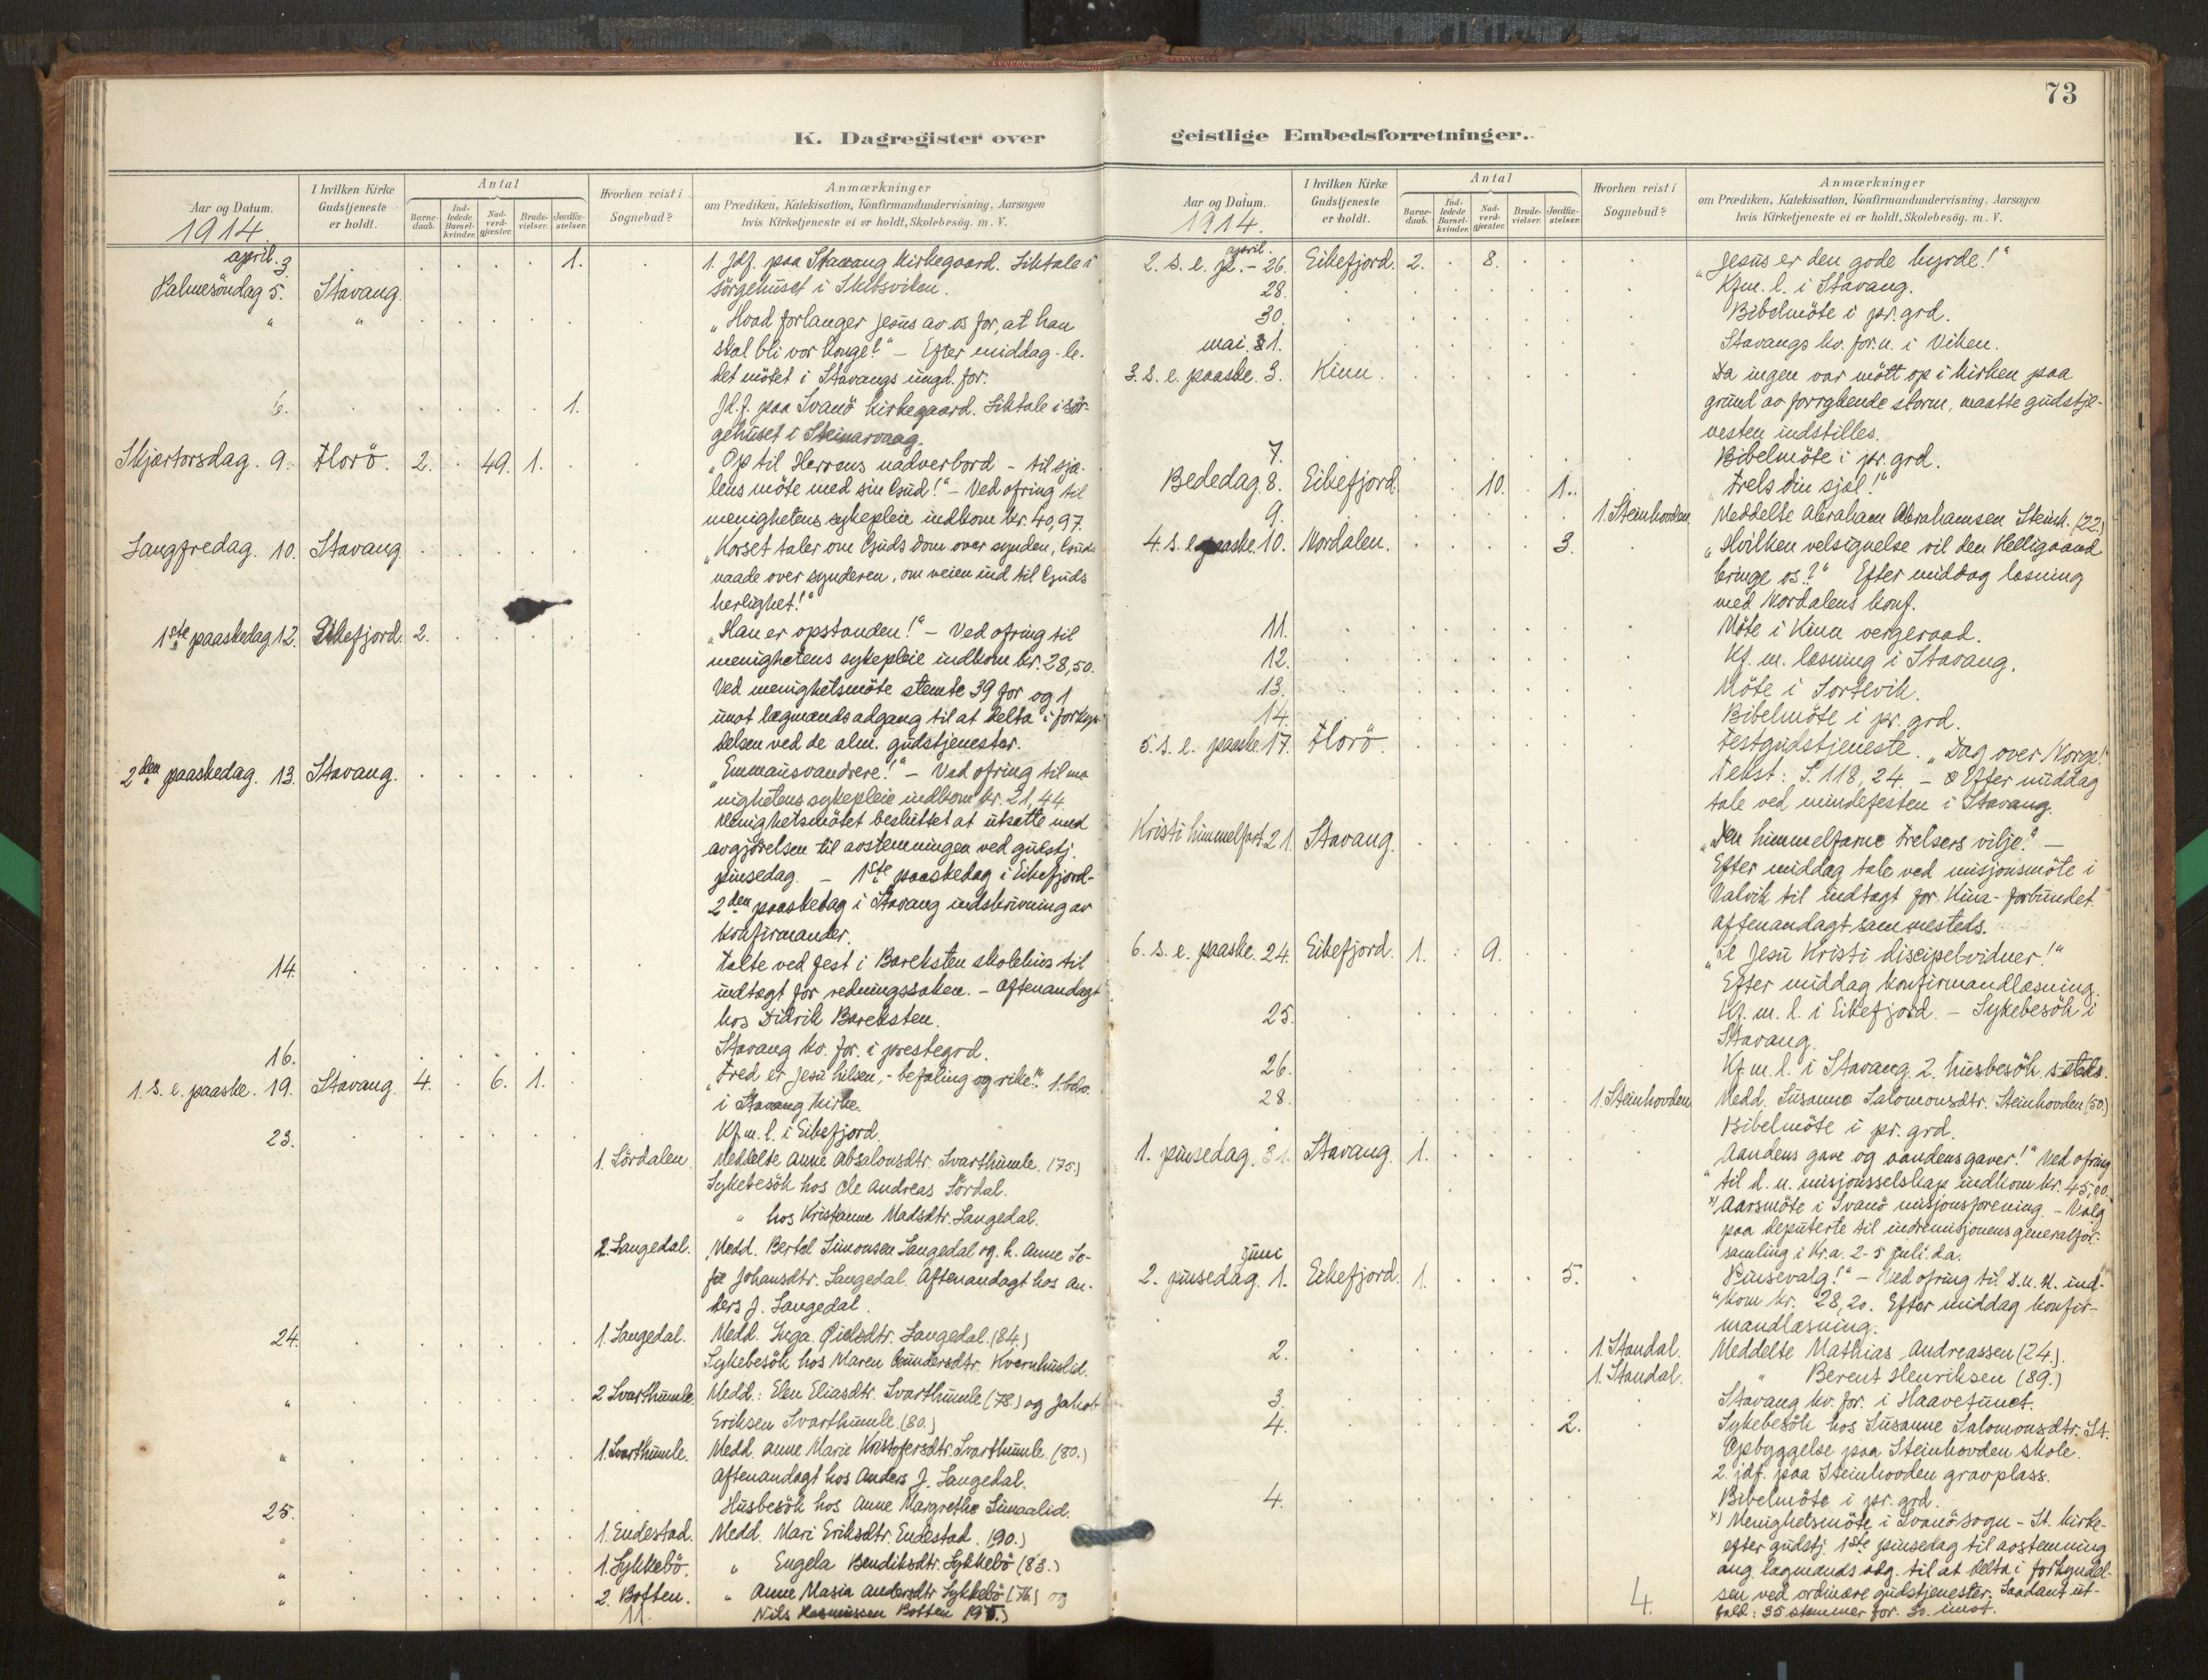 73
K. Dagregister over
Aar og Datum.
1914.
I hvilken Kirke Gudstjeneste er holdt.
Antal
Barnedaab.
Indledede Barselkvinder.
Nadverdgjæster.
Brudevielser.
Jordfæstelser.
Hvorhen reist i Sognebud?
Anmærkninger
om Prædiken, Katekisation, Konfirmandundervisning, Aarsagen
hvis Kirketjeneste ei er holdt, Skolebesög. m. V.
april. 3. 1. 1. Jdf. paa Stavang kirkegaard. Liktale i
Palmesöndag 5. Stavang. sörgehuset i
" " „Hvad forlanger Jesus av os for, at han
skal bli vor konge?" – Efter middag le-
det mötet i Stavangs ungd. for.
6. 1. Jd.f. paa Svanö kirkegaard. Liktale i sör-
gehuset i Steinarvaag.
Skjærtorsdag. 9. Florö. 2. 49. 1. „Op til Herrens nadverbord – til sjæ-
lens möte med sin Gud!" – Ved ofring til
menighetens sykepleie indkom kr. 40,97.
Langfredag. 10. Stavang. „Korset taler om Guds dom over synden, Guds
naade over synderen, om veien ind til Guds
herlighet!"
1ste paaskedag 12. Eikefjord. 2. „Han er opstanden!" – Ved ofring til
menighetens sykepleie indkom kr. 28,50.
Ved menighetsmöte stemte 39 for og 1
imot lægmands adgang til at delta i forkyn-
delsen ved de alm. gudstjenester.
2den paaskedag. 13. Stavang. „Emmausvandrere!" – Ved ofring til me-
nighetens sykepleie indkom kr. 21,44.
Menighetsmötet besluttet at utsætte med
avgjörelsen til avstemningen ved gudstj.
pinsedag. – 1ste paaskedag i Eikefjord –
2den paaskedag i Stavang indskrivning av
konfirmander.
14. Talte ved fest i Bareksten skolehus til
indtægt for redningssaken. – Aftenandagt
hos Didrik Bareksten.
16. Stavang kv. for. i prestegrd.
1. s. e. paaske. 19. Stavang. 4. 6. 1. „Fred er Jesu hilsen, – befaling og rike!"
i Stavang kirke.
23. Kf.m.l. i Eikefjord.
1. Sördalen. Meddelte Anne Absalonsdtr. Svarthumle. (75.)
Sykebesök hos Ole Andreas Sördal.
" hos Kristanne Madsdtr. Langedal.
2. Langedal. Medd. Bertel Simonsen Langedal og h. Anne So-
fie Johansdtr. Langedal. Aftenandagt hos An-
ders J. Langedal.
24. 1. Langedal. Medd. Inga Langedal. (84.)
Sykebesök hos Maren Gundersdtr. Kvernhuslid.
" 2 Svarthumle. Medd.: Elen Eliasdtr. Svarthumle (78.) og Jakob
Eriksen Svarthumle. (80.)
" 1. Svarthumle. Medd. Anne Marie Kristofersdtr. Svarthumle. (80.)
Aftenandagt hos Anders J. Langedal.
25. Husbesök hos Anne Margrethe
" 1. Endestad. Medd. Mari Eriksdtr. Endestad. (90.)
" 1. Sykkebö. " Engela Bendiksdtr. Sykkebö (83.)
" 2. Botten. " Anne Maria Andersdtr. Sykkebö (76) og
11. Nils Rasmussen Botten
geistlige Embedsforretninger.
Aar og Datum.
1914.
I hvilken Kirke Gudstjeneste er holdt.
Antal
Barnedaab.
Indledede Barselkvinder.
Nadverdgjæster.
Brudevielser.
Jordfæstelser.
Hvorhen reist i Sognebud?
Anmærkninger
om Prædiken, Katekisation, Konfirmandundervisning. Aarsagen
hvis Kirketjeneste ei er holdt, Skolebesög. m. V.
april.
2. s. e. p. – 26. Eikefjord. 2. 8. „Jesus er den gode hyrde!"
28. Kfm. l. i Stavang.
30. Bibelmöte i pr. grd.
mai. 1. Stavangs kv. for. u. i Viken.
3. s. e. paaske. 3. Kinn. Da ingen var mött op i kirken paa
grund av forrykende storm, maatte gudstje-
nesten indstilles.
7. Bibelmöte i pr. grd.
Bededag. 8. Eikefjord. 10. 1. „Frels din sjæl!"
9. 1. Steinhovden. Meddelte Abraham Abrahamsen Steinh. (22.)
4. s. e. paaske 10. Nordalen. 3. „Hvilken velsignelse vil den Helligaand
bringe os?" Efter middag læsning
med Nordalens konf.
11. Möte i Kinn vergeraad.
12. Kf. m. læsning i Stavang.
13. Möte i Sortevik.
14. Bibelmöte i pr. grd.
5. s. e. paaske 17. Florö. Festgudstjeneste. „Dag over Norge!"
Tekst: S. 118, 24. – Efter middag
tale ved mindefesten i Stavang.
Kristi himmelfart 21. Stavang. „Den himmelfarne frelsers vilje!" –
Efter middag tale ved misjonsmöte i
Valvik til indtægt for Kina-forbundet
Aftenandagt sammesteds.
6. s. e. paaske. 24. Eikefjord. 1. 9. Jesu Kristi discipelvidner!"
Efter middag konfirmandlæsning.
25. Kf. m. l. i Eikefjord. – Sykebesök i
Stavang.
26. Kf. m. l. i Stavang. 2. husbesök
28. 1. Steinhovden. Medd. Susanne Salomonsdtr. Steinhovden (50.)
Bibelmöte i pr. grd.
1. pinsedag. 31. Stavang. 1. „Aandens gave og aandens gaver!" Ved ofring
til d. n. misjonsselskap indkom kr. 45,00.
x) Aarsmöte i Svanö misjonsforening. – Valg
paa deputerte til indremisjonens generalfor-
samling i Kr.a. 2-5 juli d.a.
juni
2. pinsedag. 1. Eikefjord. 1. 5. „Pinsevalg!" – Ved ofring til D.n.M. ind-
kom kr. 28,20. Efter middag konfir-
mandlæsning.
2. 1. Standal. Meddelte Mathias Andreassen (24.).
1. Standal. " Berent Henriksen (89.)
3. Stavang kv. for. i Haavetunet.
4. 2. Sykebesök hos Susanne Salomonsdtr. St.
Opbyggelse paa Steinhovden skole.
2. jdf. paa Steinhovden gravplass.
4. Bibelmöte i pr. grd.
x) Menighetsmöte i Svanö sogn – St. kirke –
efter gudstj. 1ste pinsedag til avstemning
ang. lægmands adg. til at delta i forkyndel-
sen ved ordinære gudstjenester. Saadant ut-
4. fald: 35 stemmer for. 30. imot.